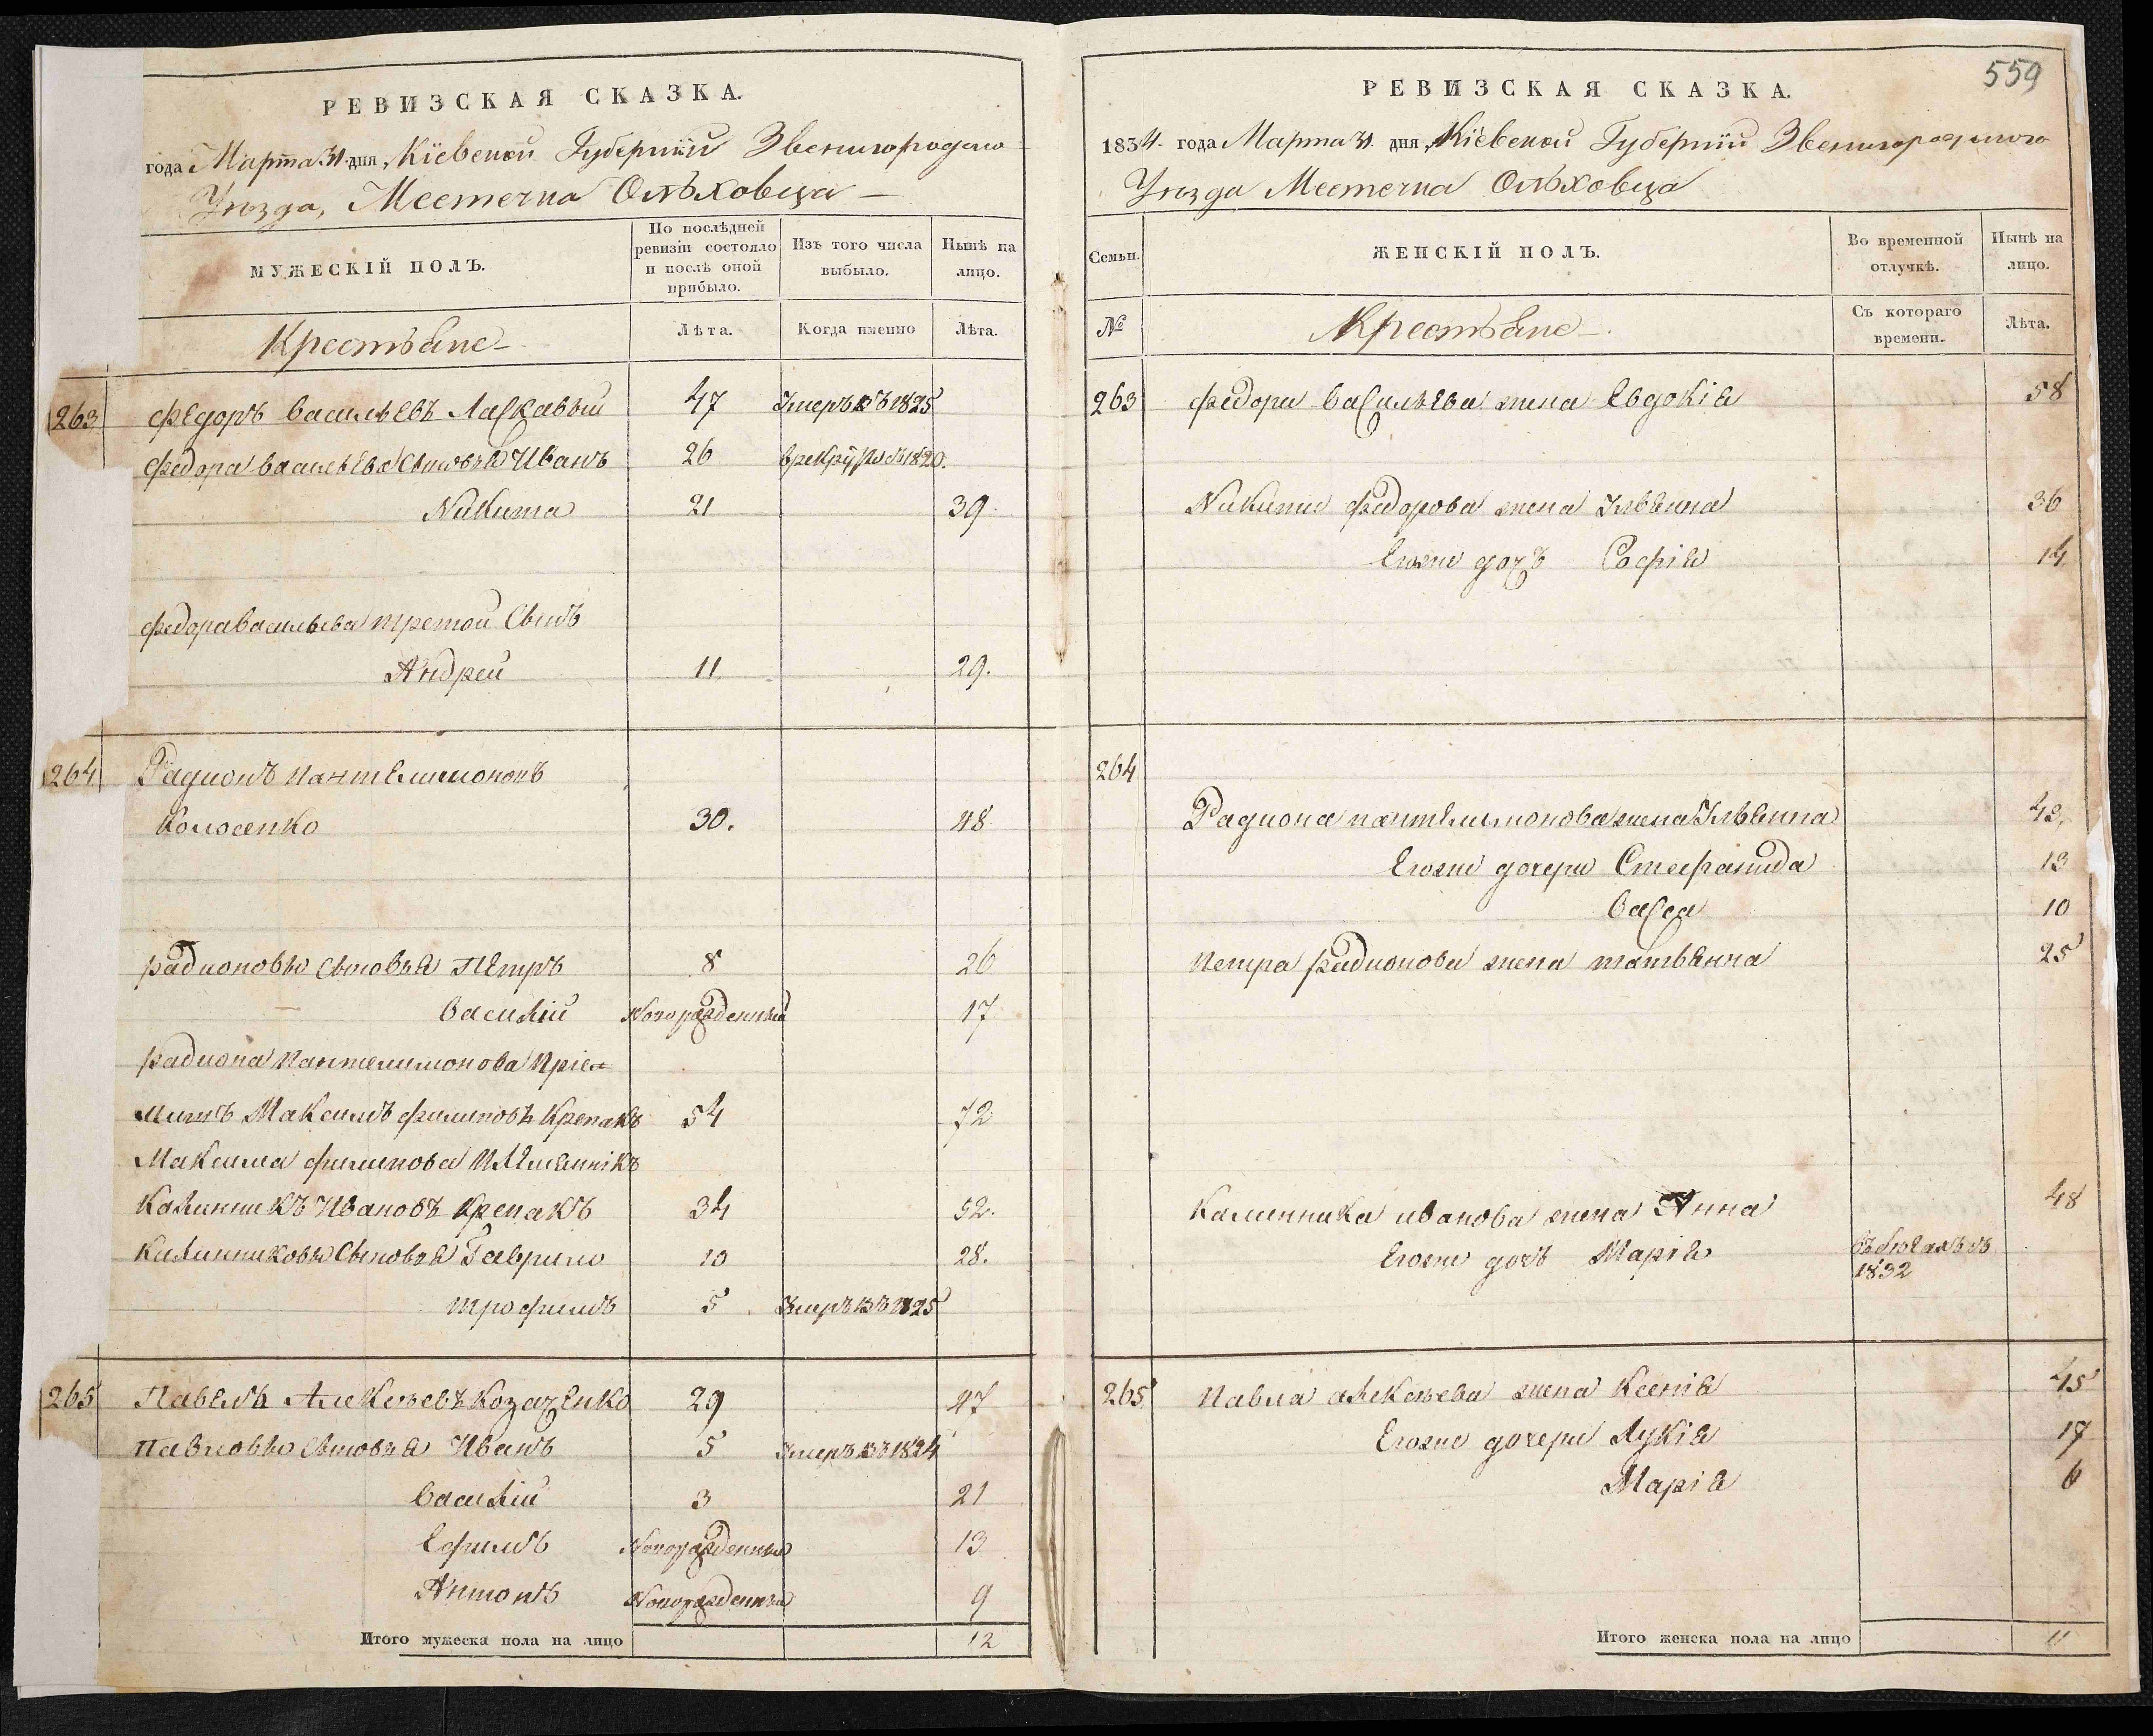 РЕВИЗСКАЯ СКАЗКА.
года Марта 31 дня, Кіевской Губерніи Звенигородско
Уѣзда, Местечка Ольховца —
МУЖЕСКІЙ ПОЛЪ.
По послѣдней ревизіи состояло и послѣ оной прибыло.
Изъ того числа выбыло.
Нынѣ на лицо.
Крестьяне
Лѣта.
Когда именно
Лѣта.
263 Федоръ Васильевъ Ласкавый 47 Умеръ въ 1825
Федора Васильева Сыновья Иванъ 26 в рекруты въ 1820.
Никита 21 39.
Федора Васильева третой Сынъ
Андрей 11 29.
264 Радионъ Пантелимоновъ
Колосенко 30. 48
Радионовы Сыновья Петръ 8 26
Василій Новорожденный 17
Радиона Пантелимонова Пріе=
мышъ Максимъ Филиповъ Крепакъ 54 72
Максима Филипова Племянникъ
Калинникъ Ивановъ Крепакъ 34 52.
Калинниковы Сыновья Гаврило 10 28.
Трофимъ 5 Умеръ въ 1825
265 Павелъ Алексѣевъ Козаченко 29 47
Павловы Сыновья Иванъ 5 Умеръ въ 1824
Василій 3 21
Ефимъ Новорожденный 13
Антонъ Новорожденный 9
Итого мужеска пола на лицо 12
559
РЕВИЗСКАЯ СКАЗКА.
1834. года Марта 31. дня, Кіевской Губерніи Звенигородского
Уѣзда Местечка Ольховца
Семьи.
ЖЕНСКІЙ ПОЛЪ.
Во временной отлучкѣ.
Нынѣ на лицо.
№
Крестьяне
Съ котораго времени.
Лѣта.
263 Федора Васильева жена Евдокія 58
Никиты Федорова жена Ульянна 36
Егоже дочь Софія 14
264
Радиона Пантелимонова жена Ульянна 43,
Егоже дочери Стефанида 13
Васса 10
Петра Радионова жена Татьянна 25
Калинника Иванова жена Анна 48
Егоже дочь Марія въ бегахъ съ
1832
265 Павла Алексѣева жена Ксенія 45
Егоже дочери Лукія 17
Марія 6
Итого женска пола на лицо 11